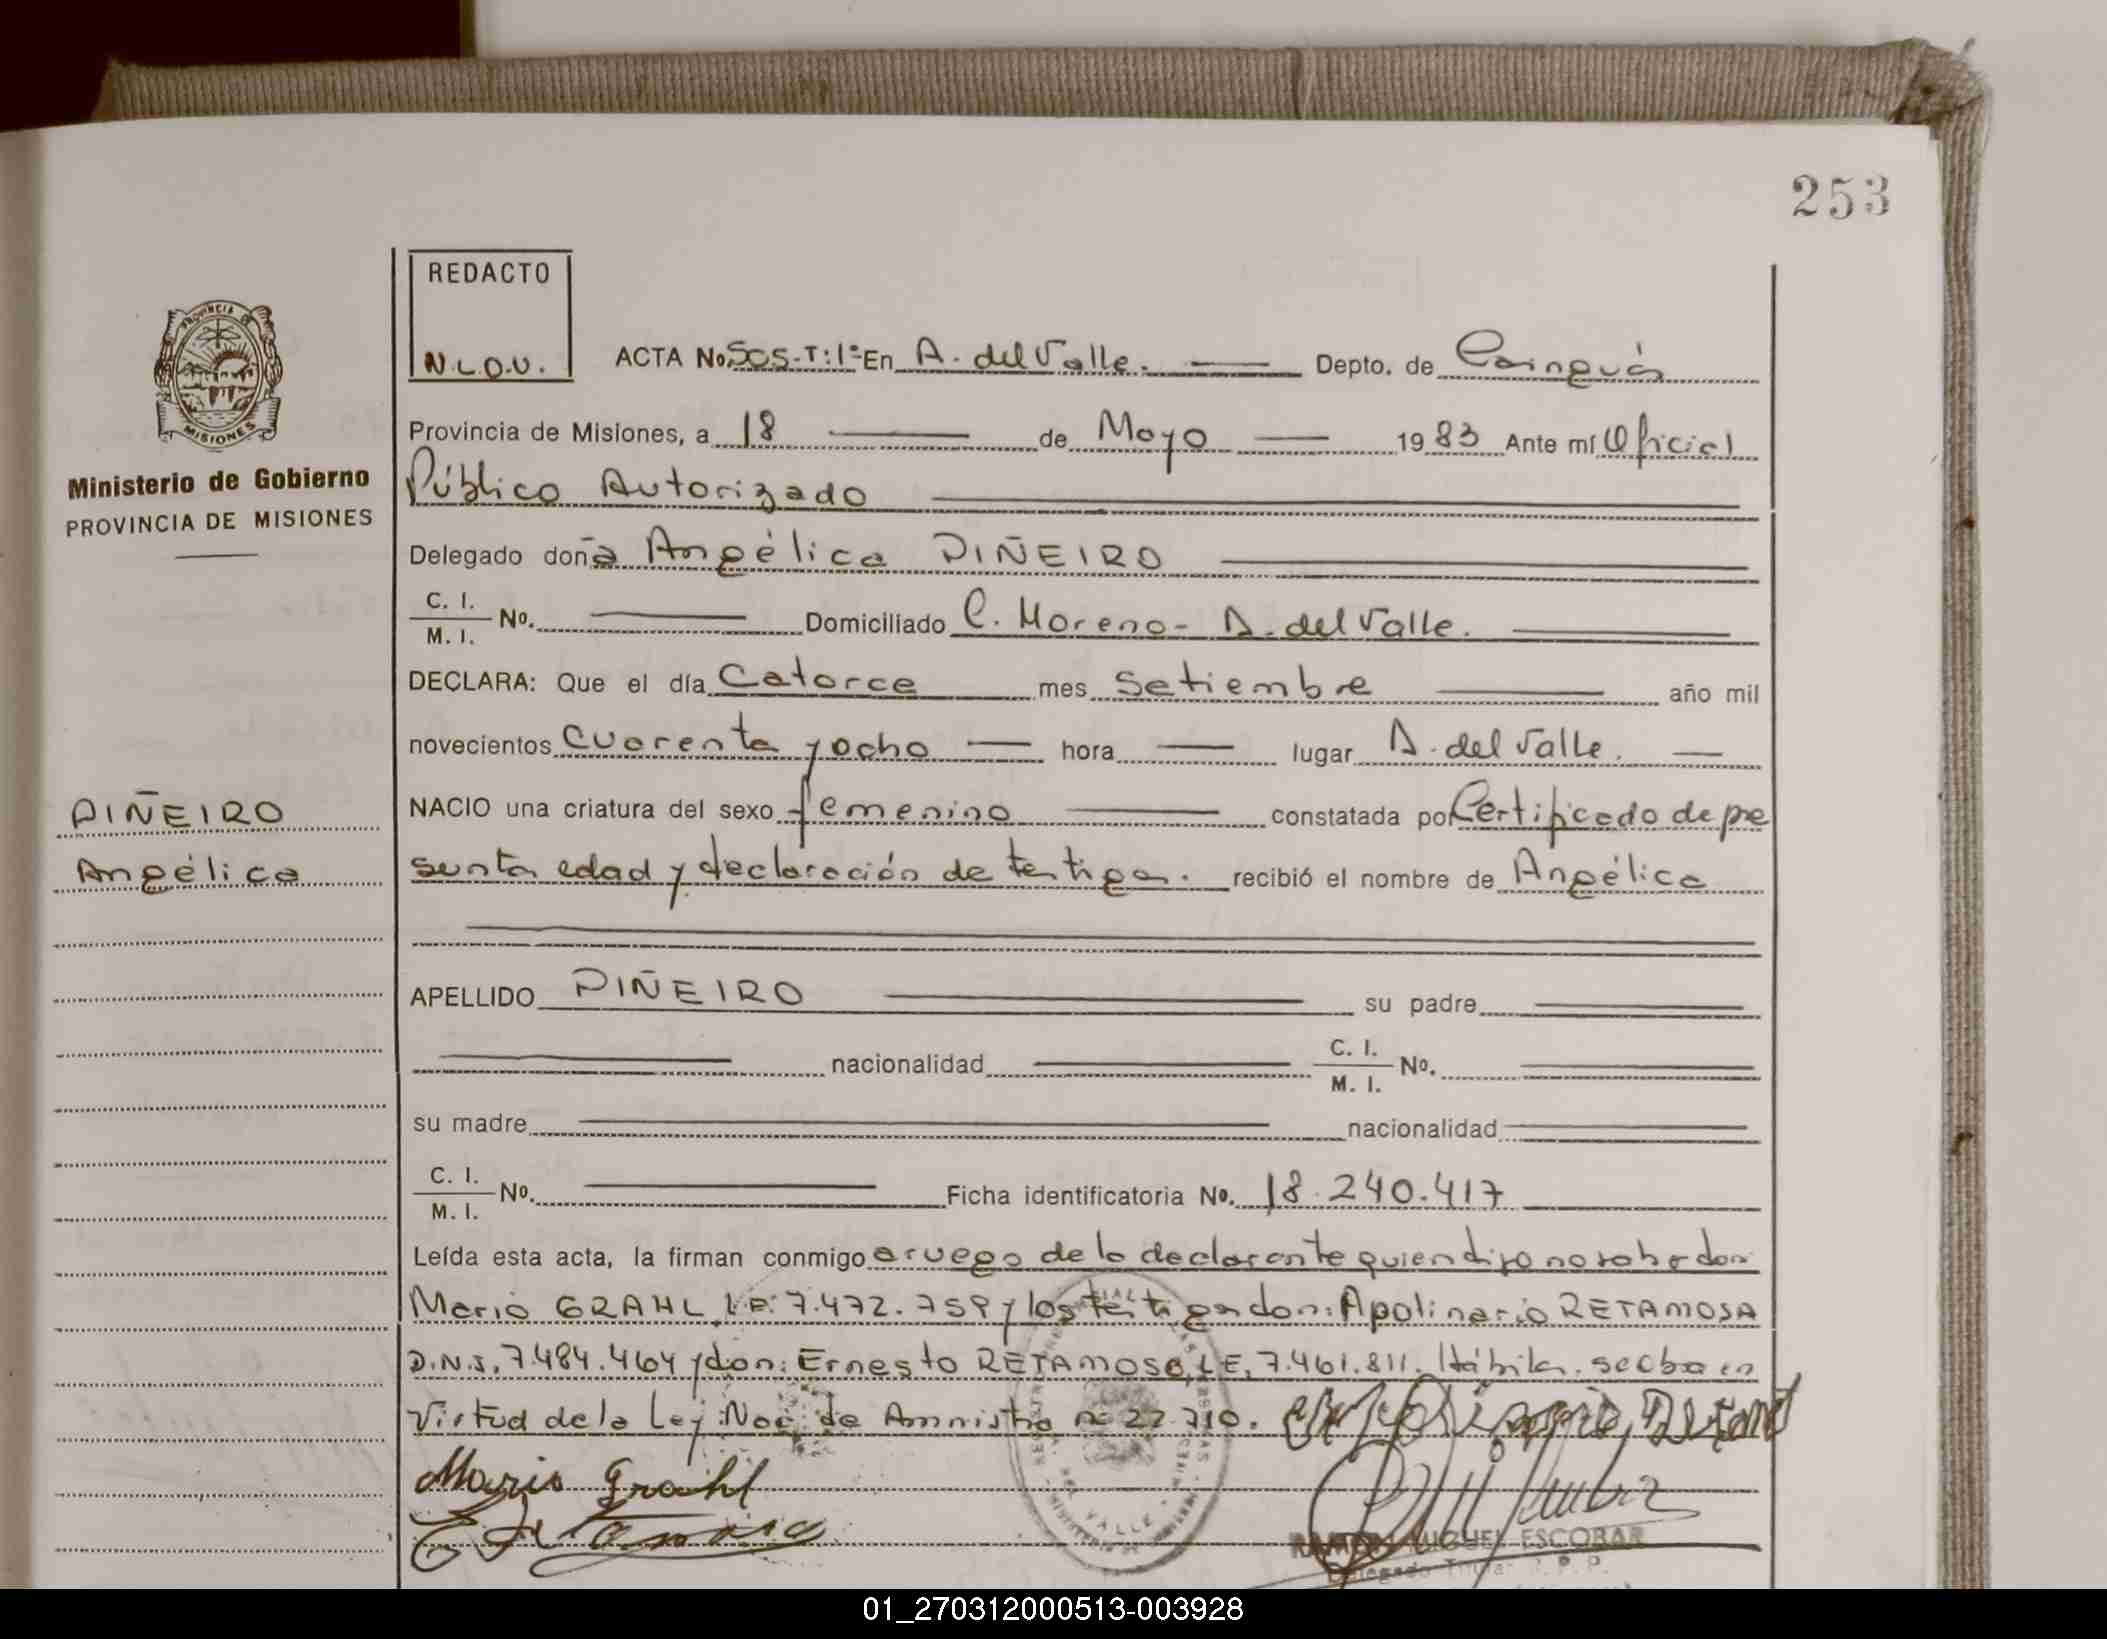 253
REDACTO
N.L.O.V.
ACTA No. 505-T:1º En A. del Valle. Depto. de Cainguás
Provincia de Misiones, a 18 de Mayo 1983 Ante mí Oficial
Público Autorizado
Ministerio de Gobierno
PROVINCIA DE MISIONES
Delegado doña Angélica PIÑEIRO
C. I.
M. I. No. Domiciliado C. Moreno - A. del Valle.
DECLARA: Que el día Catorce mes Setiembre año mil
novecientos cuarenta y ocho hora lugar A. del Valle.
PIÑEIRO
Angélica
NACIO una criatura del sexo femenino constatada por Certificado de pre
sunta edad y declaración de testigos. recibió el nombre de Angélica
APELLIDO PIÑEIRO su padre
nacionalidad C. I.
M. I. No.
su madre nacionalidad
C. I.
M. I. No. Ficha identificatoria No. 18.240.417
Leída esta acta, la firman conmigo a ruego de la declarante quien dijo no saber don
Mario GRAHL, L.E. 7.472.759 y los testigos don: Apolinario RETAMOSA
D.N.I. 7.484.464 y don: Ernesto RETAMOSO, L.E. 7.461.811. Hábiles. se labra en
Virtud de la Ley Nac. de Amnistia nº 22.710.
Mario Grahl
RAMON MIGUEL ESCOBAR
Delegado Titular R.P.P.
01_270312000513-003928